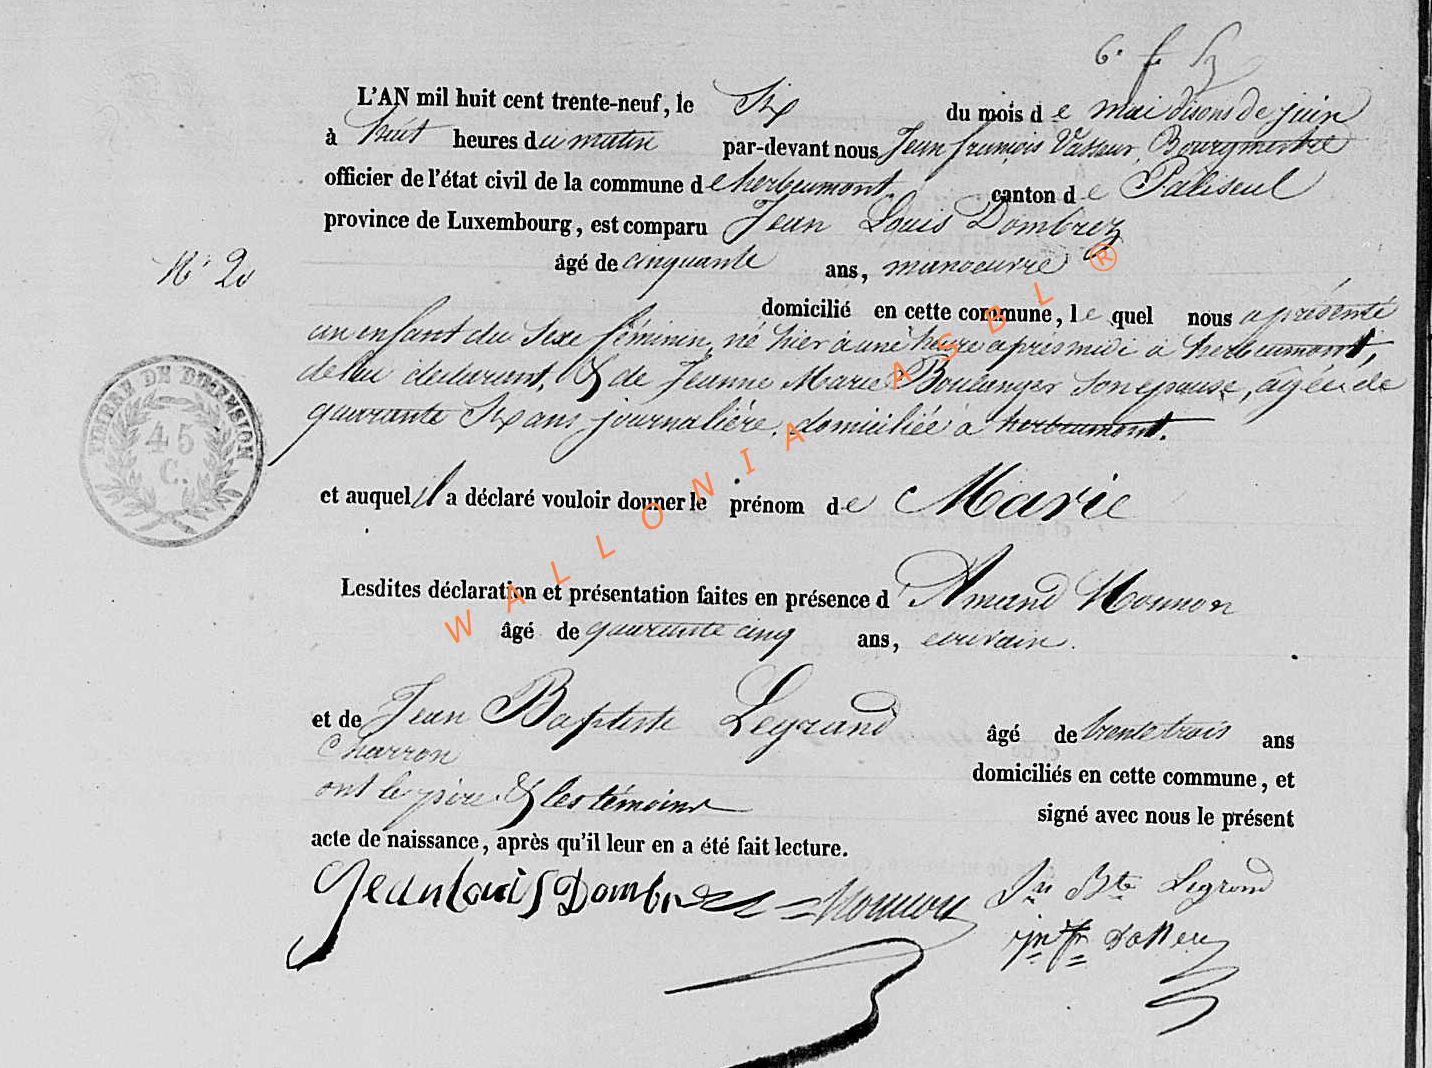 6. f.
L'AN mil huit cent trente-neuf, le Six du mois de mai disons de juin
à huit heures du matin par-devant nous Jean francois Bourgmestre
officier de l'état civil de la commune de herbeumont. canton de Paliseul
province de Luxembourg, est comparu Jean Louis Dombrez
N° 20
âgé de cinquante ans, manoeuvre
domicilié en cette commune, lequel nous a présenté
un enfant du sexe féminin, né hier à une heure apres midi à herbeumont,
de lui déclarant, & de Jeanne Marie Boulanger son epouse, agée de
quarante Six ans journalière. domiciliée à herbeumont.
TIMBRE DE DIMENSION
45
C.
et auquel il a déclaré vouloir donner le prénom de Marie
Lesdites déclaration et présentation faites en présence d'Amand Monnon
âgé de quarante cinq ans, ecrivain.
et de Jean Baptiste Legrand âgé de trente trois ans
Charron domiciliés en cette commune, et
ont le père & les témoins signé avec nous le présent
acte de naissance, après qu'il leur en a été fait lecture.
Jean Louis Dombrez = Monnon Jn Bte Legrand
Jn fr
WALLONIA ASBL ®